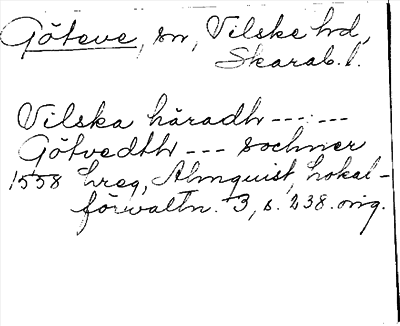 Göteve, sn, Vilske hd,
Skarab. l.
Vilska häradh --- ---
Götvedthr --- sochner
1558 hreg, Almquist, Lokal-
förvaltn. 3, s. 238. orig.